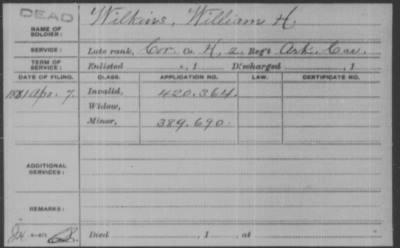 DEAD
NAME OF SOLDIER: Wilkins, William H.
SERVICE: Late rank, Cor. Co. H, 2 Reg't Ark. Cav.
TERM OF SERVICE: Enlisted , 1 Discharged , 1
DATE OF FILING. CLASS. APPLICATION NO. LAW. CERTIFICATE NO.
1881 Apr. 7. Invalid, 420.364.
Widow,
Minor, 389.690.
ADDITIONAL SERVICES:
REMARKS:
Died , 1 , at